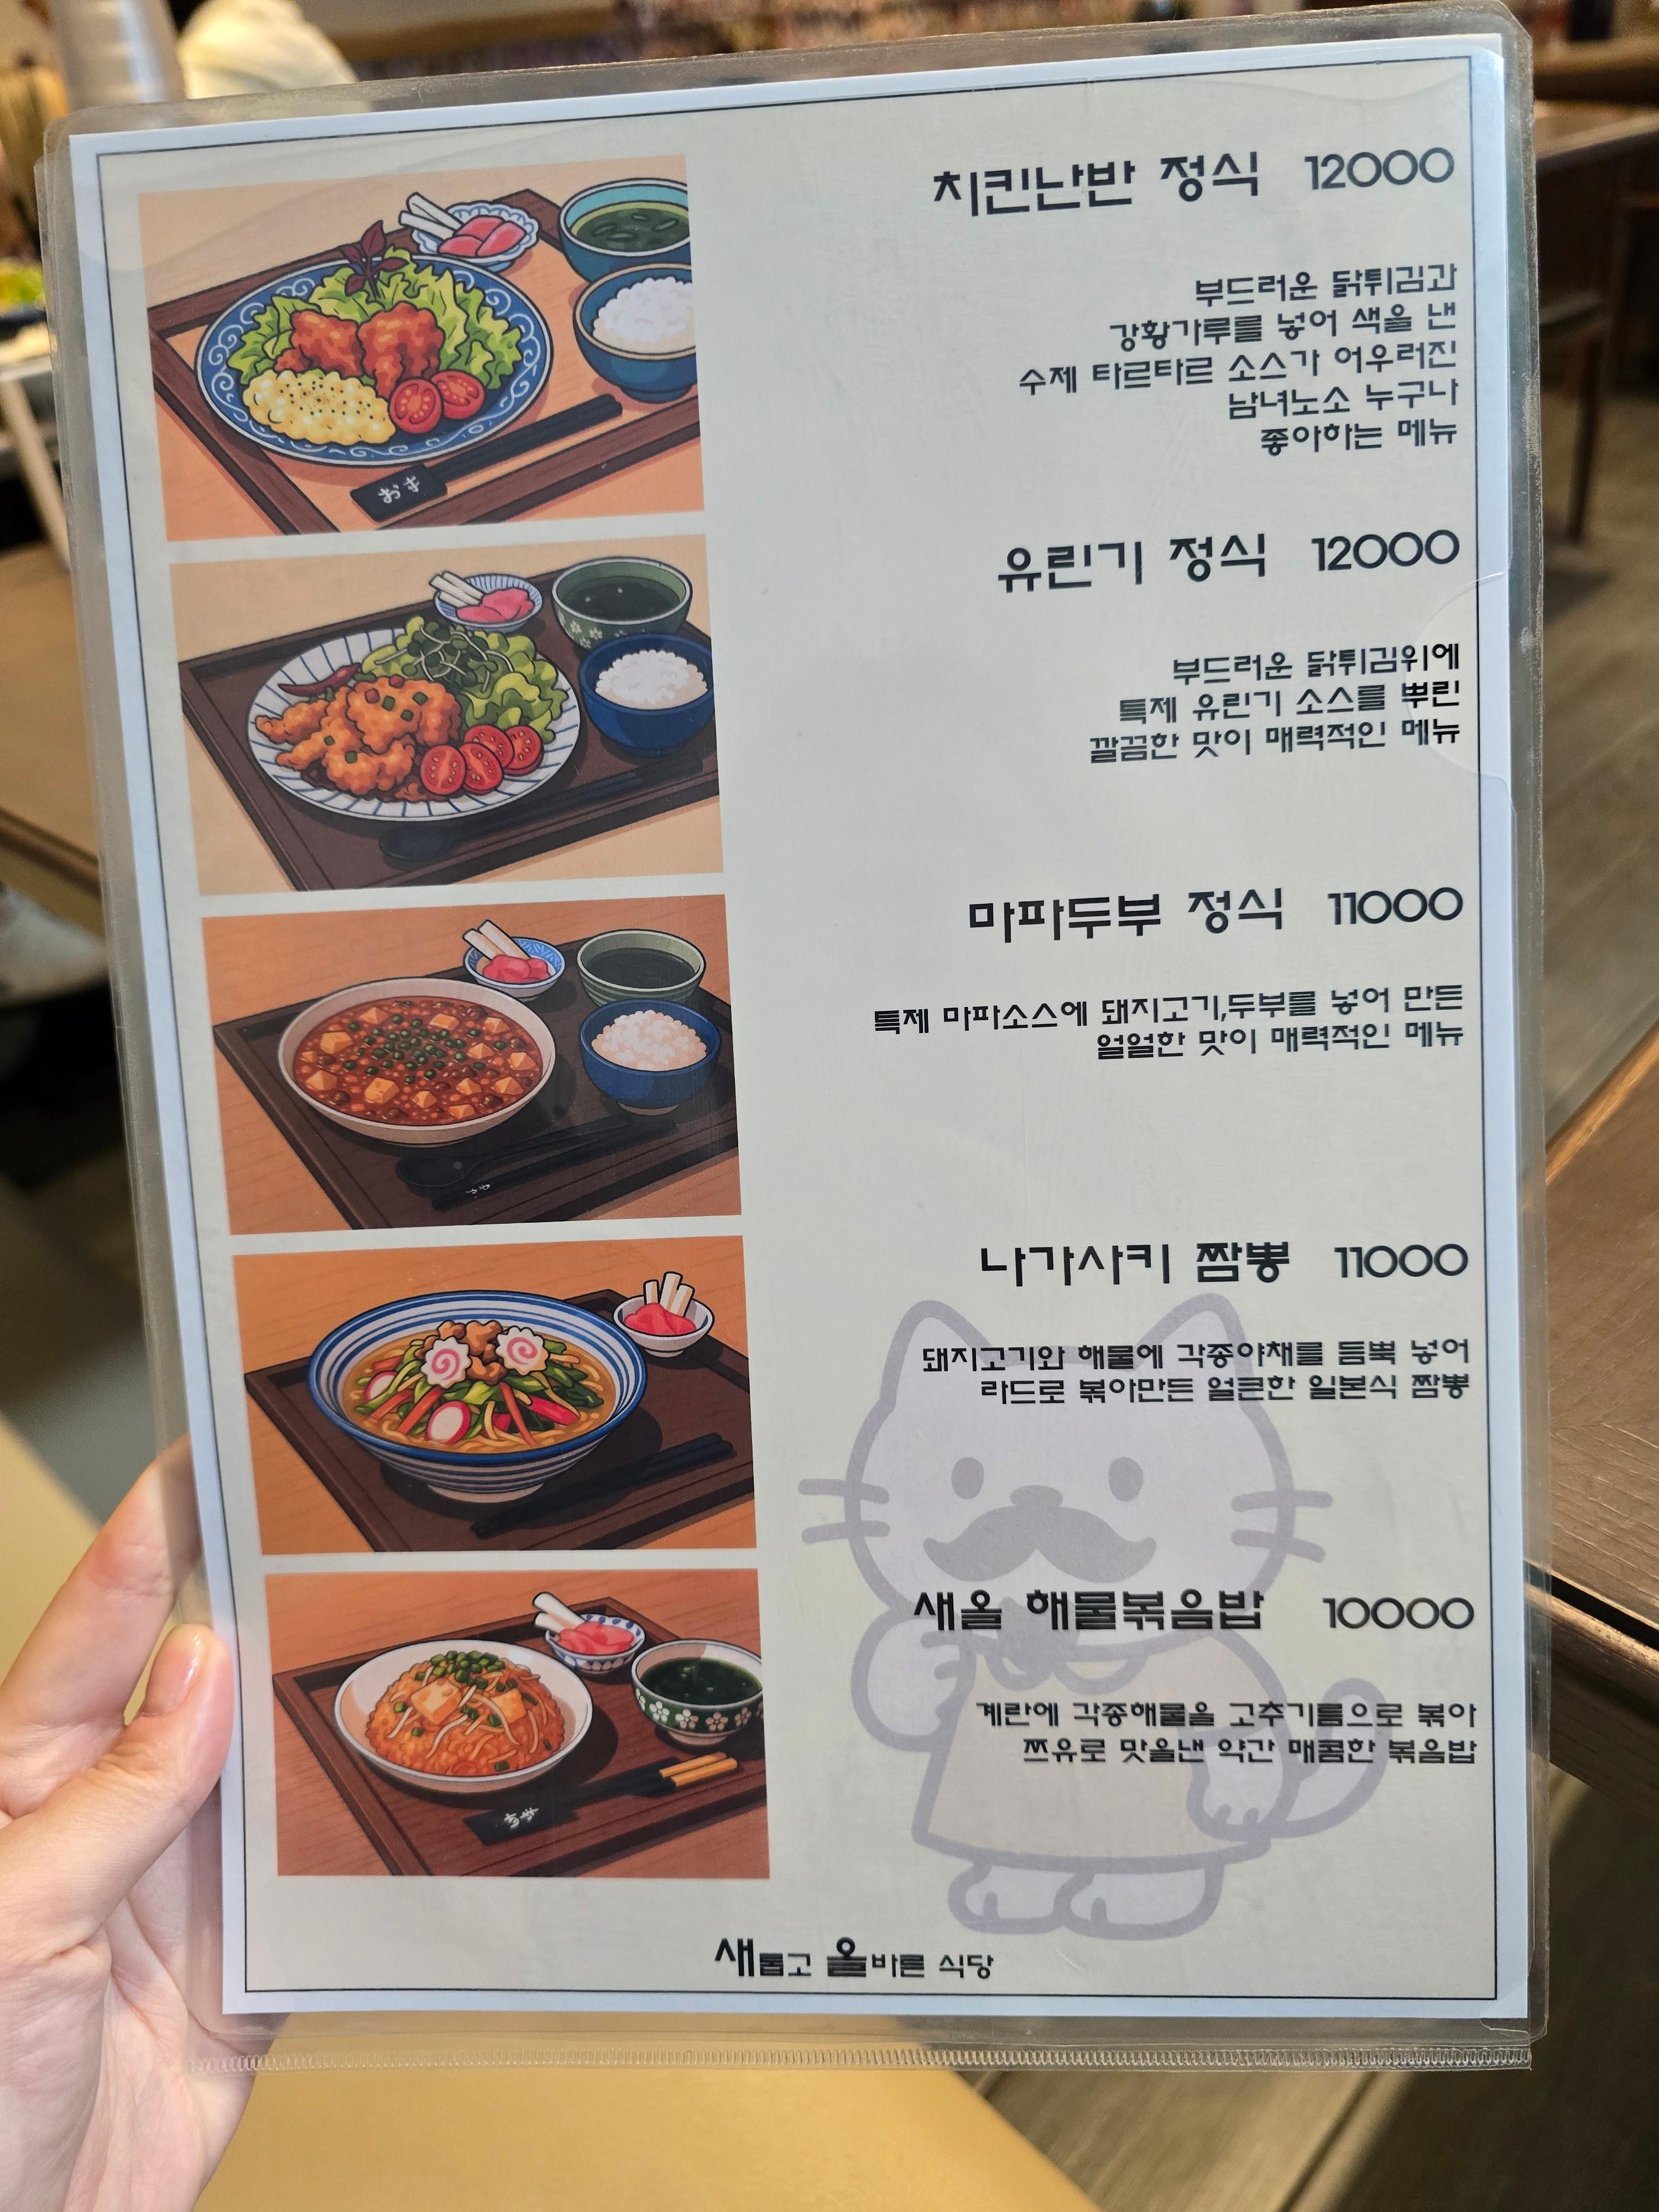 치킨난반 정식 12000
부드러운 닭튀김과
강황가루를 넣어 색을 낸
수제 타르타르 소스가 어우러진
남녀노소 누구나
좋아하는 메뉴
유린기 정식 12000
부드러운 닭튀김위에
특제 유린기 소스를 뿌린
깔끔한 맛이 매력적인 메뉴
마파두부 정식 11000
특제 마파소스에 돼지고기,두부를 넣어 만든
얼얼한 맛이 매력적인 메뉴
나가사키 짬뽕 11000
돼지고기와 해물에 각종야채를 듬뿍 넣어
라드로 볶아만든 얼큰한 일본식 짬뽕
새올 해물볶음밥 10000
계란에 각종해물을 고추기름으로 볶아
쯔유로 맛을낸 약간 매콤한 볶음밥
새롭고 올바른 식당